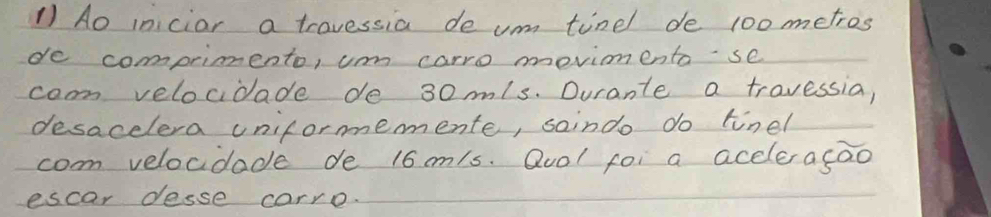 1) Ao iniciar a travessia de um túnel de 100 metros
de comprimento, um carro movimenta-se
com velocidade de 30 m/s. Durante a travessia,
desacelera uniformemente, saindo do túnel
com velocidade de 16 m/s. Qual foi a aceleração
escar desse carro.